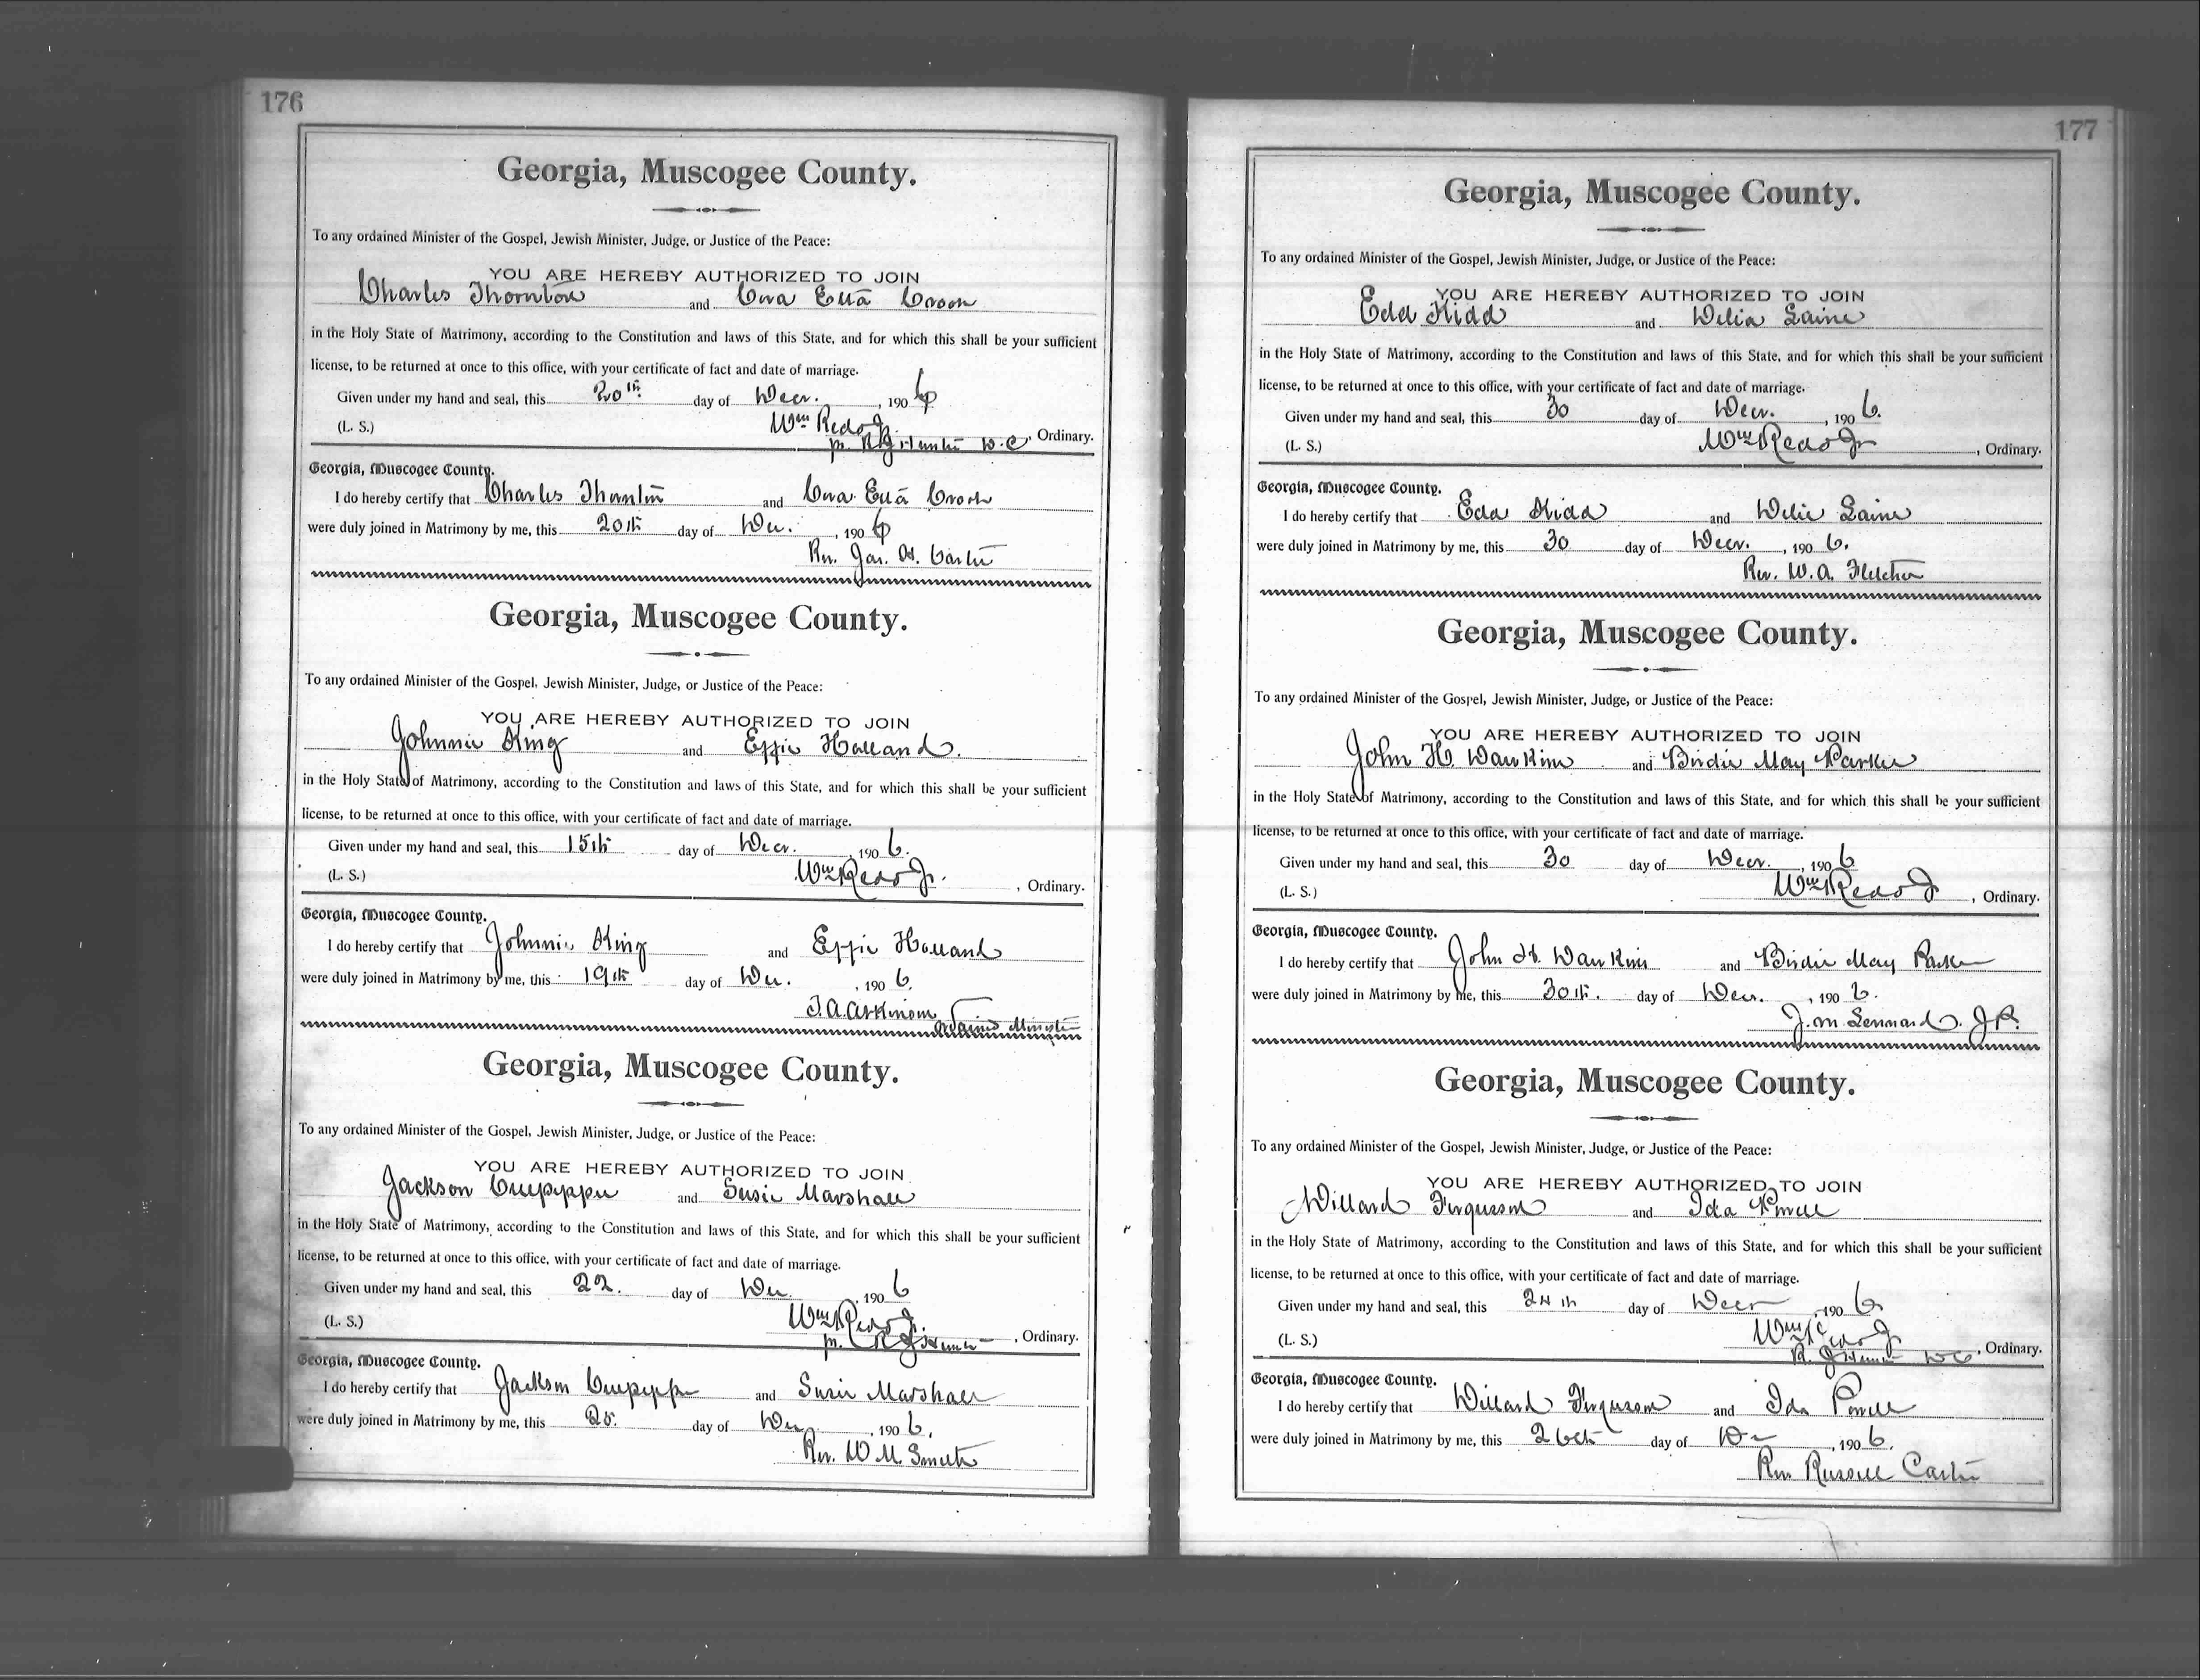 176
Georgia, Muscogee County.
To any ordained Minister of the Gospel, Jewish Minister, Judge, or Justice of the Peace:
YOU ARE HEREBY AUTHORIZED TO JOIN
Charles Thornton and Cora Ella
in the Holy State of Matrimony, according to the Constitution and laws of this State, and for which this shall be your sufficient
license, to be returned at once to this office, with your certificate of fact and date of marriage.
Given under my hand and seal, this 20th day of Decr. , 190 6
Wm Redd Jr.
(L. S.) , Ordinary.
Georgia, Muscogee County.
I do hereby certify that Charles Thornton and Cora Ella
were duly joined in Matrimony by me, this 20th day of Dec. , 190 6
Rev. Jas. H. Carter
Georgia, Muscogee County.
To any ordained Minister of the Gospel, Jewish Minister, Judge, or Justice of the Peace:
YOU ARE HEREBY AUTHORIZED TO JOIN
Johnnie King and Effie Holland.
in the Holy State of Matrimony, according to the Constitution and laws of this State, and for which this shall be your sufficient
license, to be returned at once to this office, with your certificate of fact and date of marriage.
Given under my hand and seal, this 15th day of Decr. , 190 6.
(L. S.) Wm Redd Jr. , Ordinary.
Georgia, Muscogee County.
I do hereby certify that Johnnie King and Effie Holland
were duly joined in Matrimony by me, this 19th day of Dec. , 190 6.
Ordained Minister
Georgia, Muscogee County.
To any ordained Minister of the Gospel, Jewish Minister, Judge, or Justice of the Peace:
YOU ARE HEREBY AUTHORIZED TO JOIN
Jackson Culpepper and Susie Marshall
in the Holy State of Matrimony, according to the Constitution and laws of this State, and for which this shall be your sufficient
license, to be returned at once to this office, with your certificate of fact and date of marriage.
Given under my hand and seal, this 22. day of Dec. , 190 6
Wm Redd Jr.
(L. S.) , Ordinary.
Georgia, Muscogee County.
I do hereby certify that Jackson Culpepper and Susie Marshall
were duly joined in Matrimony by me, this 25. day of Dec , 190 6.
Rev. W. M. Smith
177
Georgia, Muscogee County.
To any ordained Minister of the Gospel, Jewish Minister, Judge, or Justice of the Peace:
YOU ARE HEREBY AUTHORIZED TO JOIN
Kidd and Delia Laine
in the Holy State of Matrimony, according to the Constitution and laws of this State, and for which this shall be your sufficient
license, to be returned at once to this office, with your certificate of fact and date of marriage.
Given under my hand and seal, this 30 day of Decr. , 190 6.
(L. S.) Wm Redd Jr , Ordinary.
Georgia, Muscogee County.
I do hereby certify that Kidd and Delia Laine
were duly joined in Matrimony by me, this 30 day of Decr. , 190 6.
Rev. W. A. Fletcher
Georgia, Muscogee County.
To any ordained Minister of the Gospel, Jewish Minister, Judge, or Justice of the Peace:
YOU ARE HEREBY AUTHORIZED TO JOIN
John H. Dawkins and Birdie May Parker
in the Holy State of Matrimony, according to the Constitution and laws of this State, and for which this shall be your sufficient
license, to be returned at once to this office, with your certificate of fact and date of marriage.
Given under my hand and seal, this 30 day of Decr. , 190 6
(L. S.) Wm Redd Jr , Ordinary.
Georgia, Muscogee County.
I do hereby certify that John H. Dawkins and Birdie May Parker
were duly joined in Matrimony by me, this 30th. day of Decr. , 190 6.
J. M. Lennard. J.P.
Georgia, Muscogee County.
To any ordained Minister of the Gospel, Jewish Minister, Judge, or Justice of the Peace:
YOU ARE HEREBY AUTHORIZED TO JOIN
Willard Ferguson and Ida Powell
in the Holy State of Matrimony, according to the Constitution and laws of this State, and for which this shall be your sufficient
license, to be returned at once to this office, with your certificate of fact and date of marriage.
Given under my hand and seal, this 24th day of Decr , 190 6
Wm Redd Jr
(L. S.) , Ordinary.
Georgia, Muscogee County.
I do hereby certify that Willard Ferguson and Ida Powell
were duly joined in Matrimony by me, this 26th day of Dec , 190 6.
Rev Russell Carter